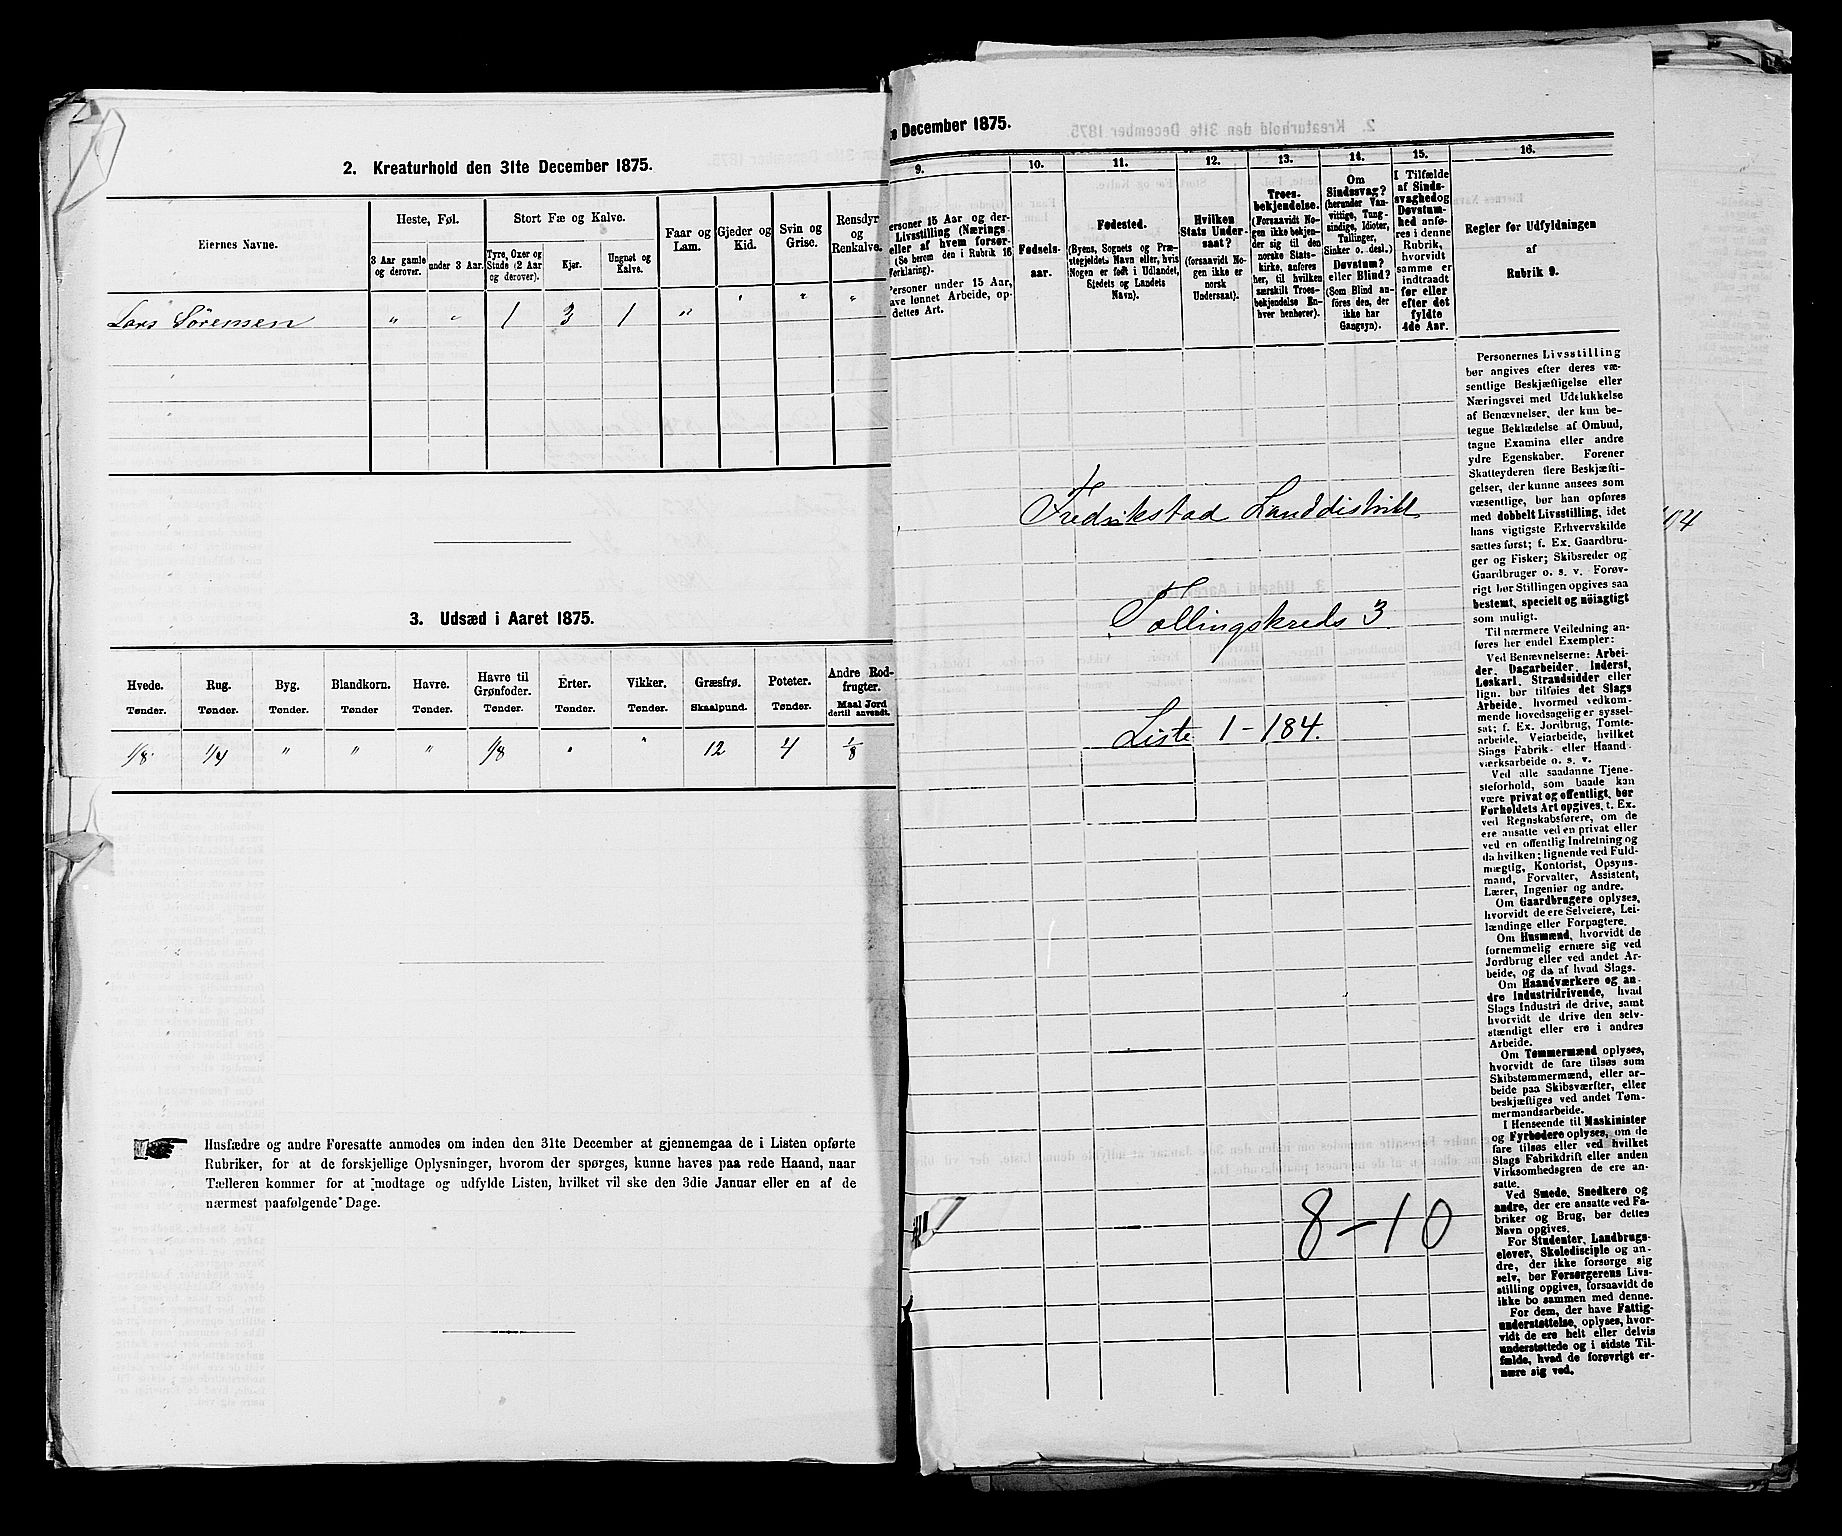 2. Kreaturhold den 31te December 1875.
Eiernes Navne.
Heste, Føl.
3 Aar gamle og derover.
under 3 Aar.
Stort Fæ og Kalve.
Tyre, Oxer og Stude (2 Aar og derover).
Kjør.
Ungnøt og Kalve.
Faar og Lam.
Gjeder og Kid.
Svin og Grise.
Rensdyr og Renkalve.
Lars Sörensen " " 1 3 1 " " " "
3. Udsæd i Aaret 1875.
Hvede. Rug. Byg. Blandkorn. Havre. Havre til Grønfoder. Erter. Vikker. Græsfrø. Poteter. Andre Rodfrugter.
Tønder. Tønder. Tønder. Tønder Tønder. Tønder. Tønder. Tønder. Skaalpund. Tønder. Maal Jord dertil anvendt.
1/8 1/4 " " " 1/8 " " 12 4 1/8
Husfædre og andre Foresatte anmodes om inden den 31te December at gjennemgaa de i Listen opførte
Rubriker, for at de forskjellige Oplysninger, hvorom der spørges, kunne haves paa rede Haand, naar
Tælleren kommer for at modtage og udfylde Listen, hvilket vil ske den 3die Januar eller en af de
nærmest paafølgende Dage.
December 1875.
9.
ersoner 15 Aar og der-
Livsstilling (Nærings
eller af hvem forsør-
(Se herom den i Rubrik 16
Forklaring).
Personer under 15 Aar,
ave lønnet Arbeide, op-
dettes Art.
10.
Fødsels-
aar.
11.
Fødested.
(Byens, Sognets og Præ-
stegjeldets Navn eller, hvis
Nogen er født i Udlandet,
Stedets og Landets
Navn).
12.
Hvilken
Stats Under-
saat?
(forsaavidt No-
gen ikke er
norsk
Undersaat).
13.
Troes-
bekjendelse.
(Forsaavidt No-
gen ikke bekjen-
der sig til den
norske Stats-
kirke, anføres
her, til hvilken
særskilt Troes-
bekjendelse En-
hver henhører).
14.
Om
Sindssvag?
(herunder Van-
vittige, Tung-
sindige, Idioter,
Tullinger,
Sinker o. desl.)
Døvstum?
eller Blind?
(Som Blind an-
føres den, der
ikke har
Gangsyn).
15.
I Tilfælde
af Sinds-
svaghed og
Døvstum-
hed anfø-
res i denne
Rubrik,
hvorvidt
samme er
indtraadt
før eller
efter det
fyldte
4de Aar.
16.
Regler for Udfyldningen
af
Rubrik 9.
Fredrikstad Landdistrikt
Tællingskreds 3
Liste 1-184.
8-10
7
Personernes Livsstilling
bør angives efter deres væ-
sentlige Beskjæftigelse eller
Næringsvei med Udelukkelse
af Benævnelser, der kun be-
tegne Beklædelse af Ombud,
tagne Examina eller andre
ydre Egenskaber. Forener
Skatteyderen flere Beskjæfti-
gelser, der kunne ansees som
væsentlige, bør han opføres
med dobbelt Livsstilling, idet
hans vigtigste Erhvervskilde
sættes først; f. Ex. Gaardbru-
ger og Fisker; Skibsreder og
Gaardbruger o. s. v. Forøv-
rigt bør Stillingen opgives saa
bestemt, specielt og nöiagtigt
som muligt.
Til nærmere Veiledning an-
føres her endel Exempler:
Ved Benævnelserne: Arbei-
der, Dagarbeider, Inderst,
Løskarl, Strandsidder eller
lign. bør tilføies det Slags
Arbeide, hvormed vedkom-
mende hovedsagelig er syssel-
sat; f. Ex. Jordbrug, Tomte-
arbeide, Veiarbeide, hvilket
Slags Fabrik- eller Haand-
værksarbeide o. s. v.
Ved alle saadanne Tjene-
steforhold, som baade kan
være privat og offentligt, bør
Forholdets Art opgives, t. Ex.
ved Regnskabsførere, om de
ere ansatte ved en privat eller
ved en offentlig Indretning og
da hvilken; lignende ved Fuld-
mægtig, Kontorist, Opsyns-
mand, Forvalter, Assistent,
Lærer, Ingeniør og andre.
Om Gaardbrugere oplyses,
hvorvidt de ere Selveiere, Lei-
lændinge eller Forpagtere.
Om Husmænd, hvorvidt de
fornemmelig ernære sig ved
Jordbrug eller ved andet Ar-
beide, og da af hvad Slags.
Om Haandværkere og an-
dre Industridrivende, hvad
Slags Industri de drive, samt
hvorvidt de drive den selv-
stændigt eller ere i andres
Arbeide.
Om Tømmermænd oplyses,
hvorvidt de fare tilsøs som
Skibstømmermænd, eller ar-
beide paa Skibsværfter, eller
beskjæftiges ved andet Tøm-
mermandsarbeide.
I Henseende til Maskinister
og Fyrbødere oplyses, om de
fare tilsøs eller ved hvilket
Slags Fabrikdrift eller anden
Virksomhedsgren de ere an-
satte.
Ved Smede, Snedkere og
andre, der ere ansatte ved Fa-
briker og Brug, bør dettes
Navn opgives.
For Studenter, Landbrugs-
elever, Skoledisciple og an-
dre, der ikke forsørge sig
selv, bør Forsørgerens Livs-
stilling opgives, forsaavidt de
ikke bo sammen med denne.
For dem, der have Fattig-
understøttelse, oplyses, hvor-
vidt de ere helt eller delvis
understøttede og i sidste Til-
fælde, hvad de forøvrigt er-
nære sig ved.